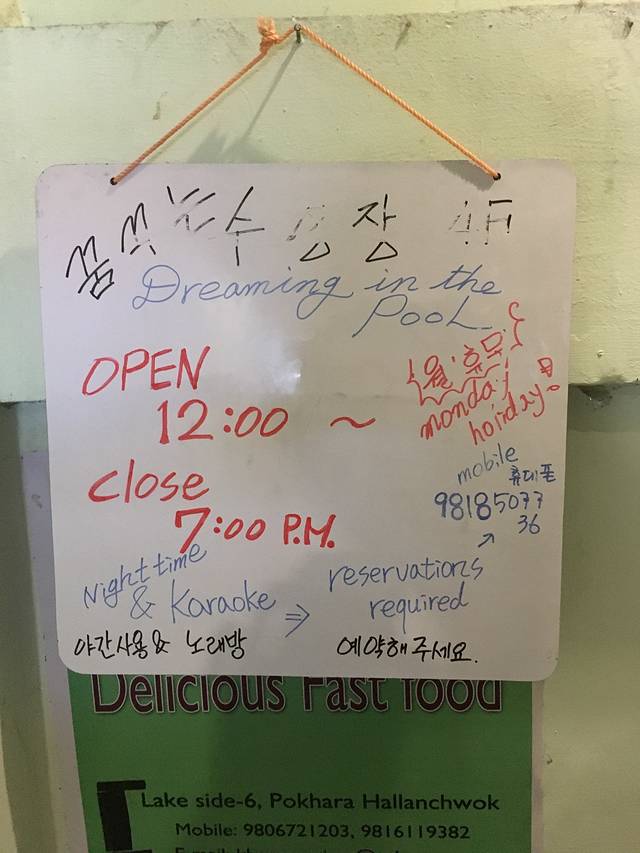 꿈꾸는 수영장 4F
Dreaming in the
Pool
OPEN
12:00 ~
월·휴무
monday
holiday!
close
7:00 P.M.
mobile
휴대폰
98185077
36
Night time
& Karaoke ⇒
reservations
required
야간사용 & 노래방
예약해 주세요.
Delicious Fast food
Lake side-6, Pokhara Hallanchwok
Mobile: 9806721203, 9816119382